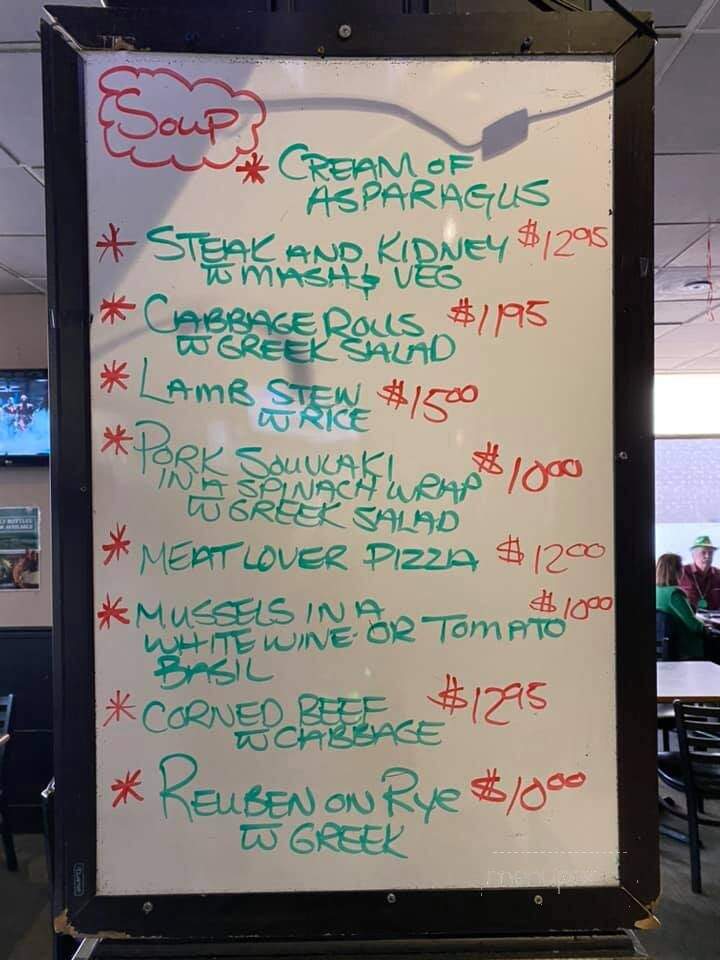 SOUP
* CREAM OF
ASPARAGUS
* STEAK AND KIDNEY $12.95
W MASH & VEG
* CABBAGE ROLLS $11.95
W GREEK SALAD
* LAMB STEW $15.00
W RICE
* PORK SOUVLAKI $10.00
IN A SPINACH WRAP
W GREEK SALAD
* MEAT LOVER PIZZA $12.00
* MUSSELS IN A $10.00
WHITE WINE OR TOMATO
BASIL
* CORNED BEEF $12.95
W CABBAGE
* REUBEN ON RYE $10.00
W GREEK